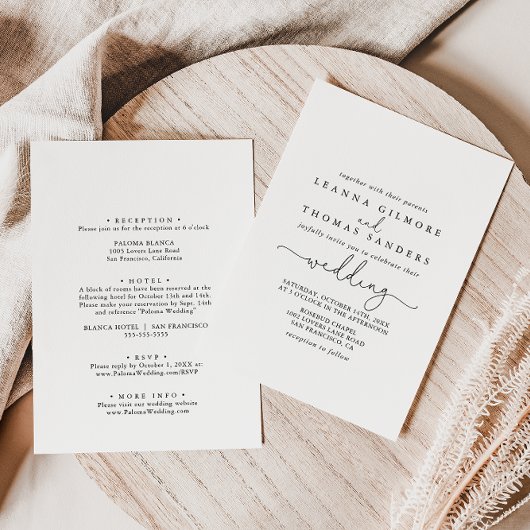 • RECEPTION •
Please join us for the reception at 6 o'clock
PALOMA BLANCA
1005 Lovers Lane Road
San Francisco, California
• HOTEL •
A block of rooms have been reserved at the
following hotel for October 13th and 14th.
Please make your reservation by Sept. 14th
and reference "Paloma Wedding"
BLANCA HOTEL | SAN FRANCISCO
555-555-5555
• RSVP •
Please reply by October 1, 20XX at:
www.PalomaWedding.com/RSVP
• MORE INFO •
Please visit our wedding website
www.PalomaWedding.com
together with their parents
LEANNA GILMORE
and
THOMAS SANDERS
joyfully invite you to celebrate their
wedding
SATURDAY, OCTOBER 14TH, 20XX
AT 3 O'CLOCK IN THE AFTERNOON
ROSEBUD CHAPEL
1002 LOVERS LANE ROAD
SAN FRANCISCO, CA
reception to follow